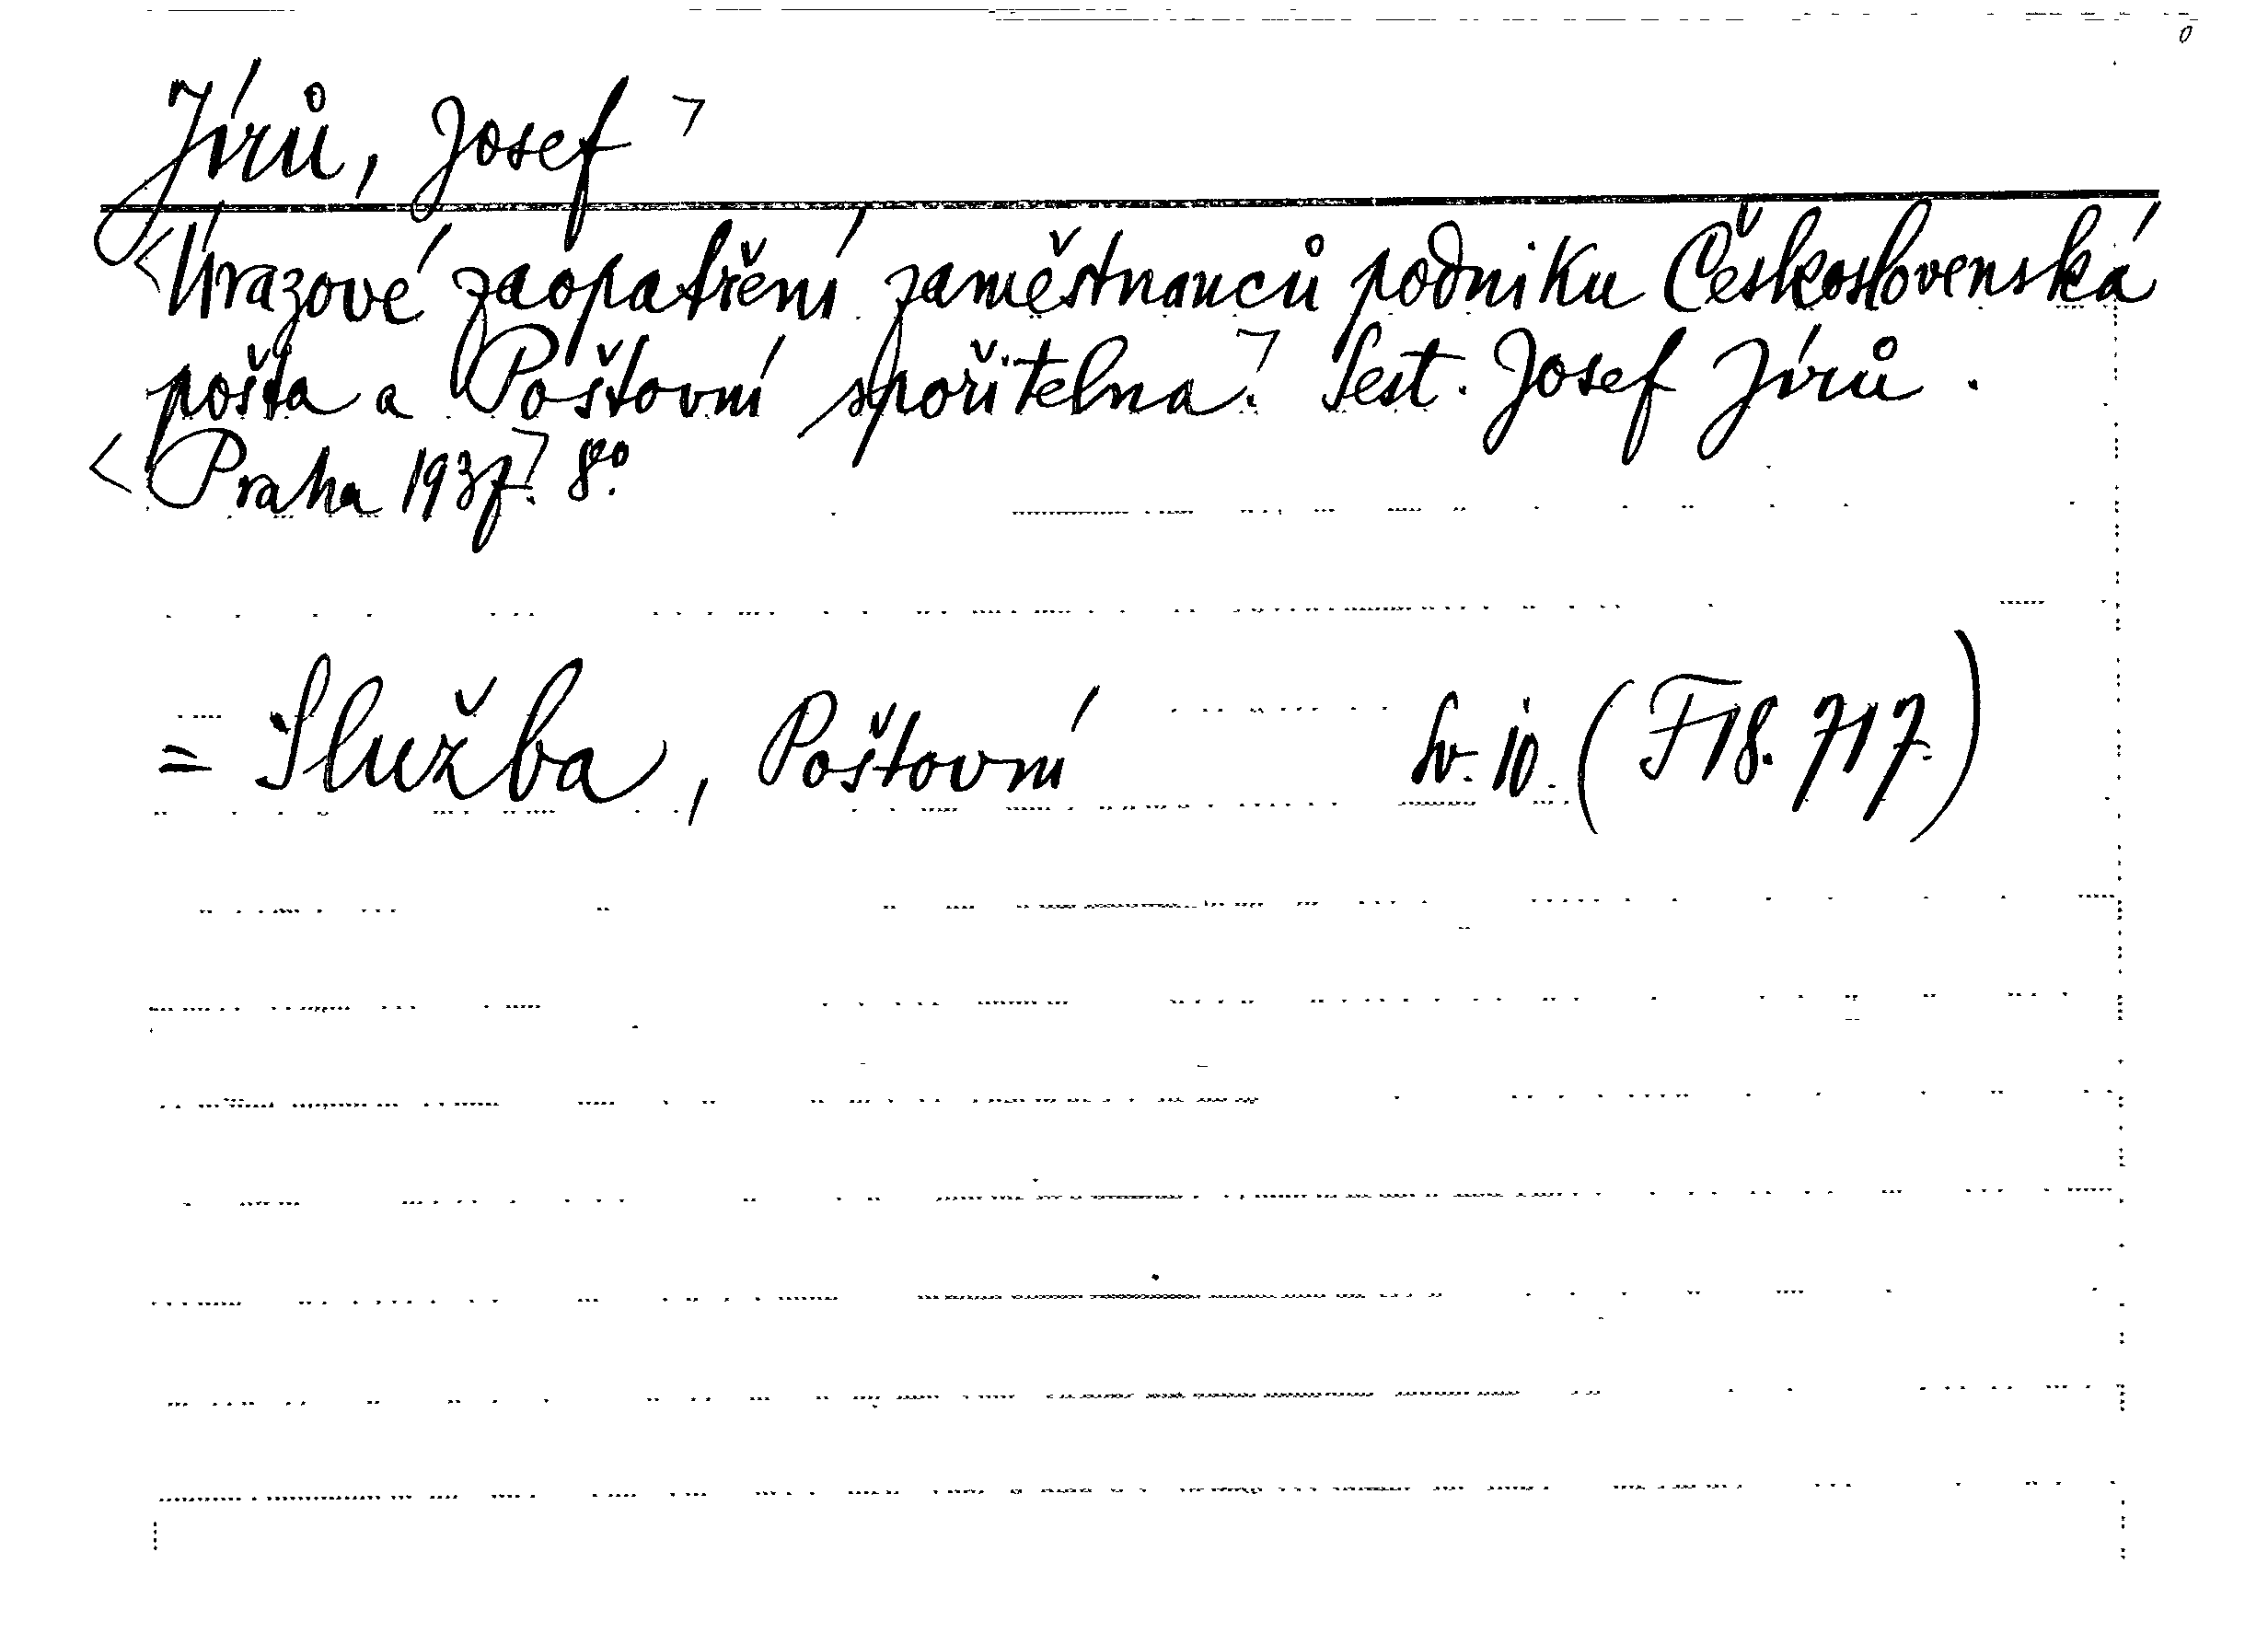 Jírů, Josef ¬
<Úrazové zaopatření zaměstnanců podniku Československá
pošta a Poštovní spořitelna.¬ Sest. Josef Jírů.
<Praha 1937.¬ 8°.
= Služba, Poštovní Sv. 10. (F 18. 717.)